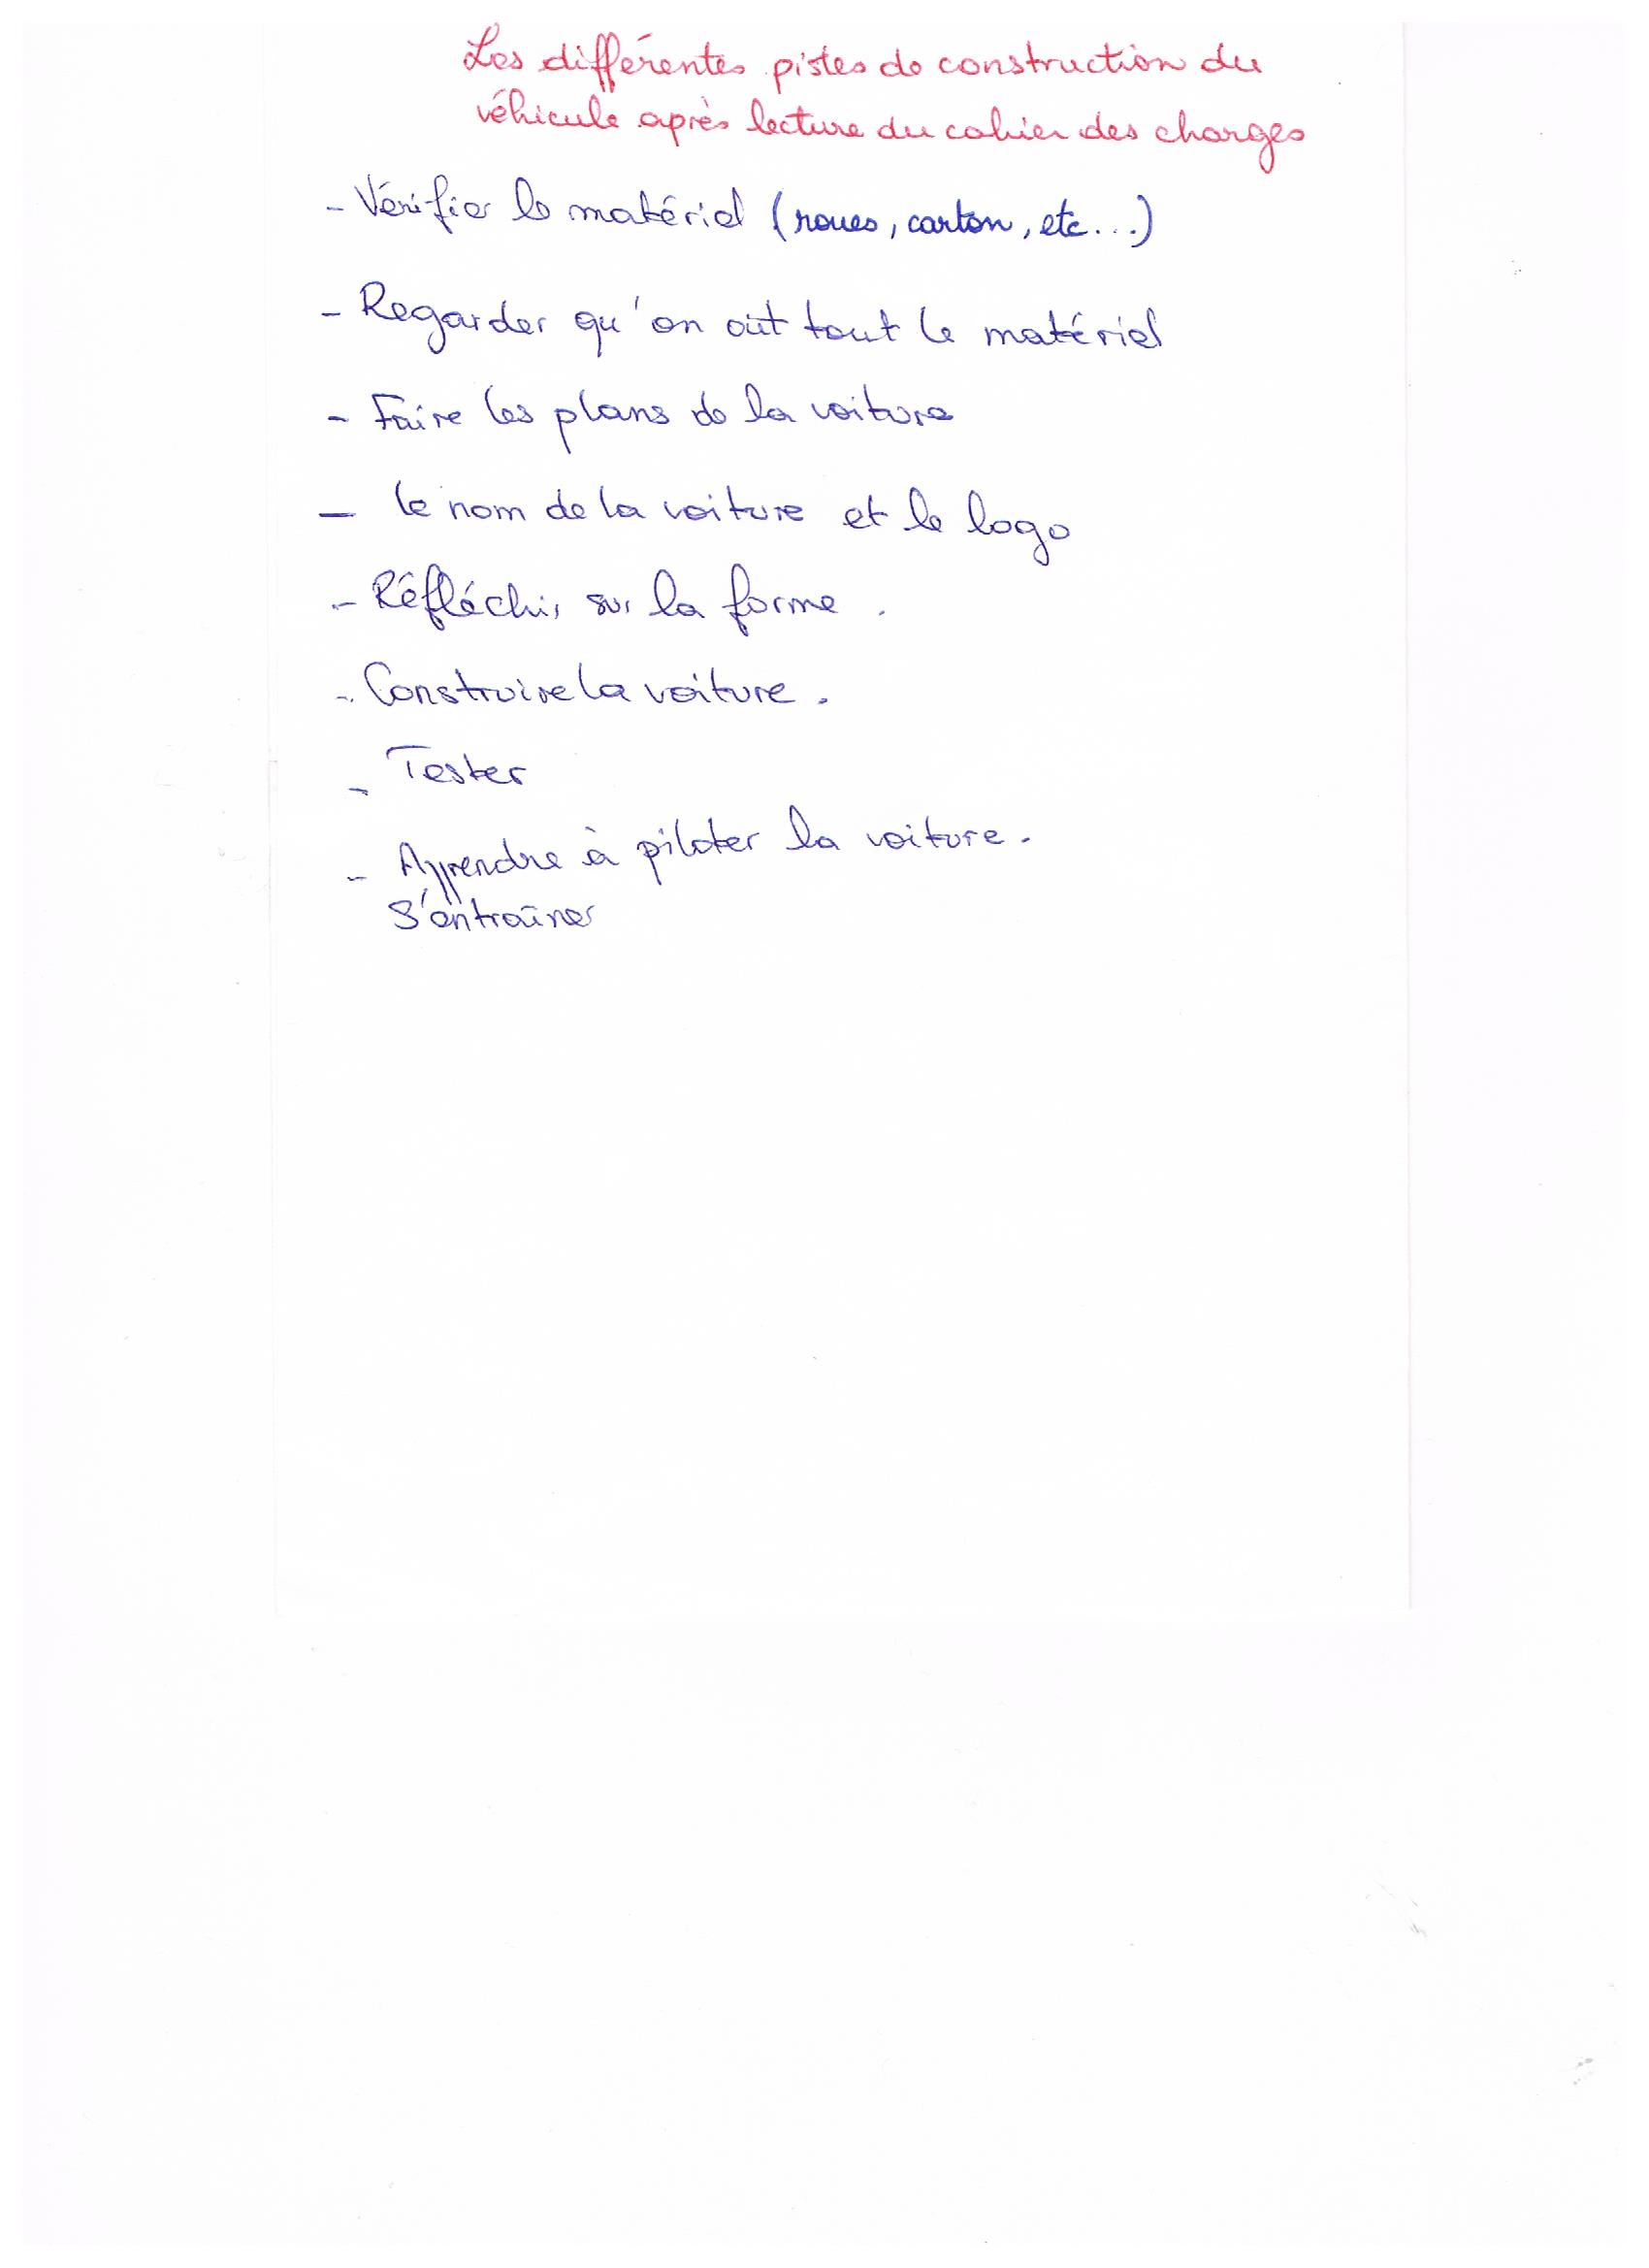 Les différentes pistes de construction du
véhicule après lecture du cahier des charges
- Vérifier le matériel (roues, carton, etc...)
- Regarder qu'on ait tout le matériel
- Faire les plans de la voiture
- le nom de la voiture et le logo
- Réfléchir sur la forme.
- Construire la voiture.
- Tester
- Apprendre à piloter la voiture.
S'entraîner